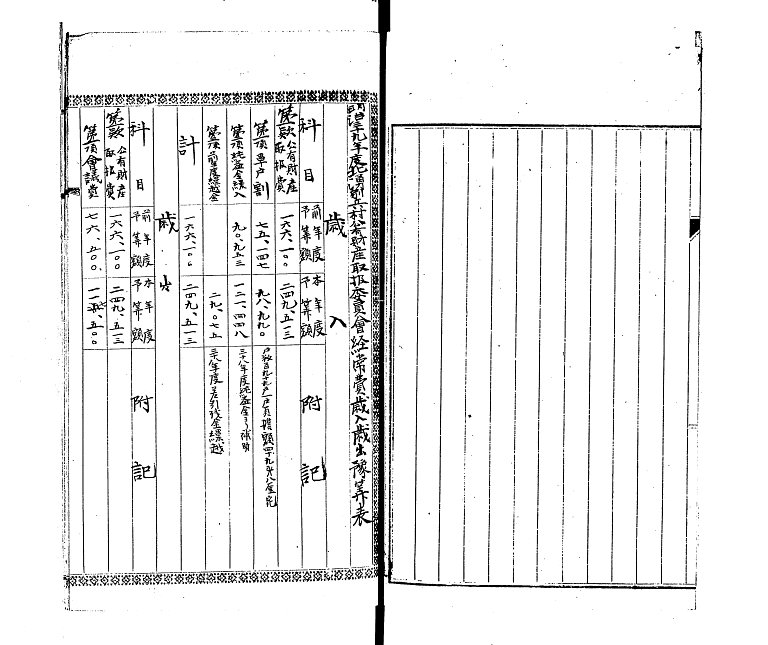 明治三十九年度 村公有財産取扱委員會經常費歳入歳出豫算表
歳入
科目 前年度予算額 本年度予算額 附記
第一款 公有財産取扱費 一六六、一〇〇 二四九、五一三
第一項 戸割 七五、一四七 九八、九九〇 一戸負擔額四十九戔八厘宛
第二項 純益金繰入 九〇、九五三 一二一、四四八 三十八年度純益金ヨリ補助
第三項 前年度繰越金 二九、〇七五 三十八年度差引残金繰越
計 一六六、一〇〇 二四九、五一三
歳出
科目 前年度予算額 本年度予算額 附記
第一款 公有財産取扱費 一六六、一〇〇 二四九、五一三
第一項 會議費 七六、五〇〇